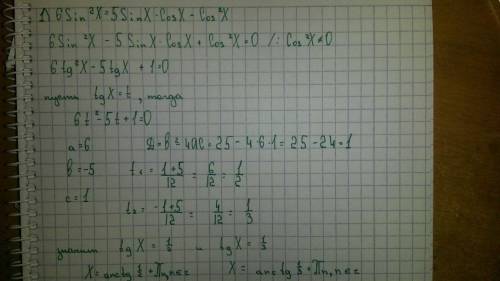 1) 6Sin²X=5SinX·CosX-Cos²X
6Sin²X - 5SinX·CosX + Cos²X=0 /: Cos²X≠0
6tg²X-5tgX +1=0
пусть tgX=t, тогда
6t²-5t+1=0
a=6 D=b²-4ac=25-4·6·1=25-24=1
b=-5 t₁=(1+5)/12=6/12=1/2
c=1
t₂=(-1+5)/12=4/12=1/3
значит tgX=1/2 и tgX=1/3
X=arctg 1/2+Πn, n∈z X=arctg 1/3+Πn, n∈z